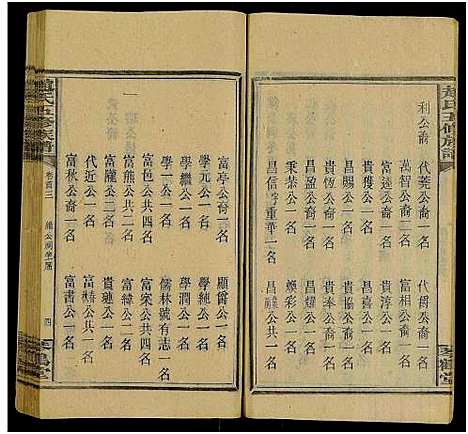 趙氏五修族譜
利公裔
代堯公裔一名
代爵公裔一名
富遠公裔一名
富相公裔一名
貴獲公一名
貴淳公一名
昌賜公一名
昌喜公一名
貴恆公裔一名
貴協公裔一名
昌盈公裔一名
昌耀公一名
秉恭公一名
煥彩公一名
昌信公裔重華一名
昌公共一名
琴鶴堂
富亭公裔一名
顯爵公一名
學元公一名
學純公一名
學繼公一名
學潤公一名
學一公一名
儒林號有志一名
富包公共四名
富家公共四名
富熊公共二名
富緯公二名
富隴公三名
富檮公共一名
代近公一名
富書公一名
富秋公裔一名
趙氏五修族譜
卷首三
四
琴鶴堂